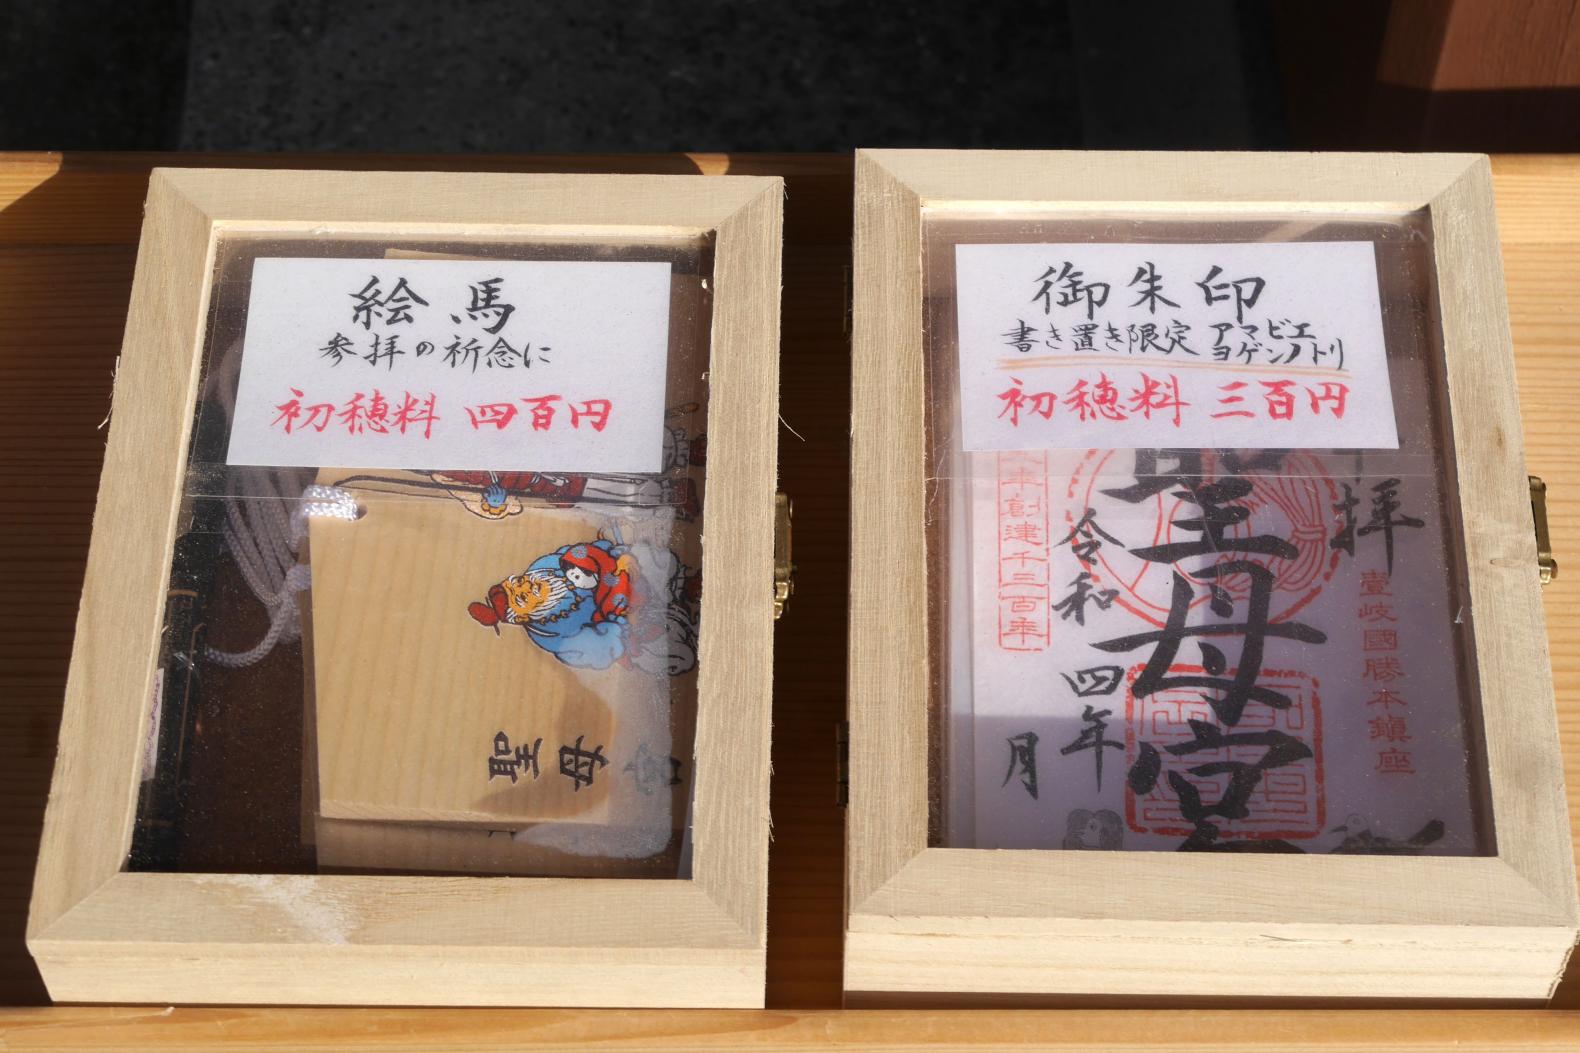 絵馬
参拝の祈念に
初穂料 四百円
聖母宮
御朱印
書き置き限定 アマビエ
ヨゲンノトリ
初穂料 三百円
拝
壹岐國勝本鎮座
聖母宮
創建千三百年
令和四年
月